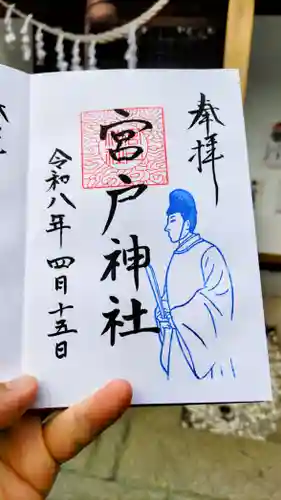 奉拝
宮戸神社
令和八年 四月十五日